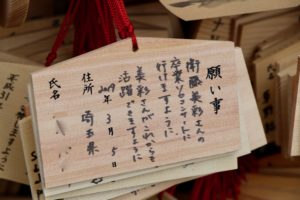 願い事
衛藤美彩さんの
卒業ソロコンサートに
行けますように
美彩さんがこれからも
活躍できますように
年 3月 5日
住所 埼玉県
氏名